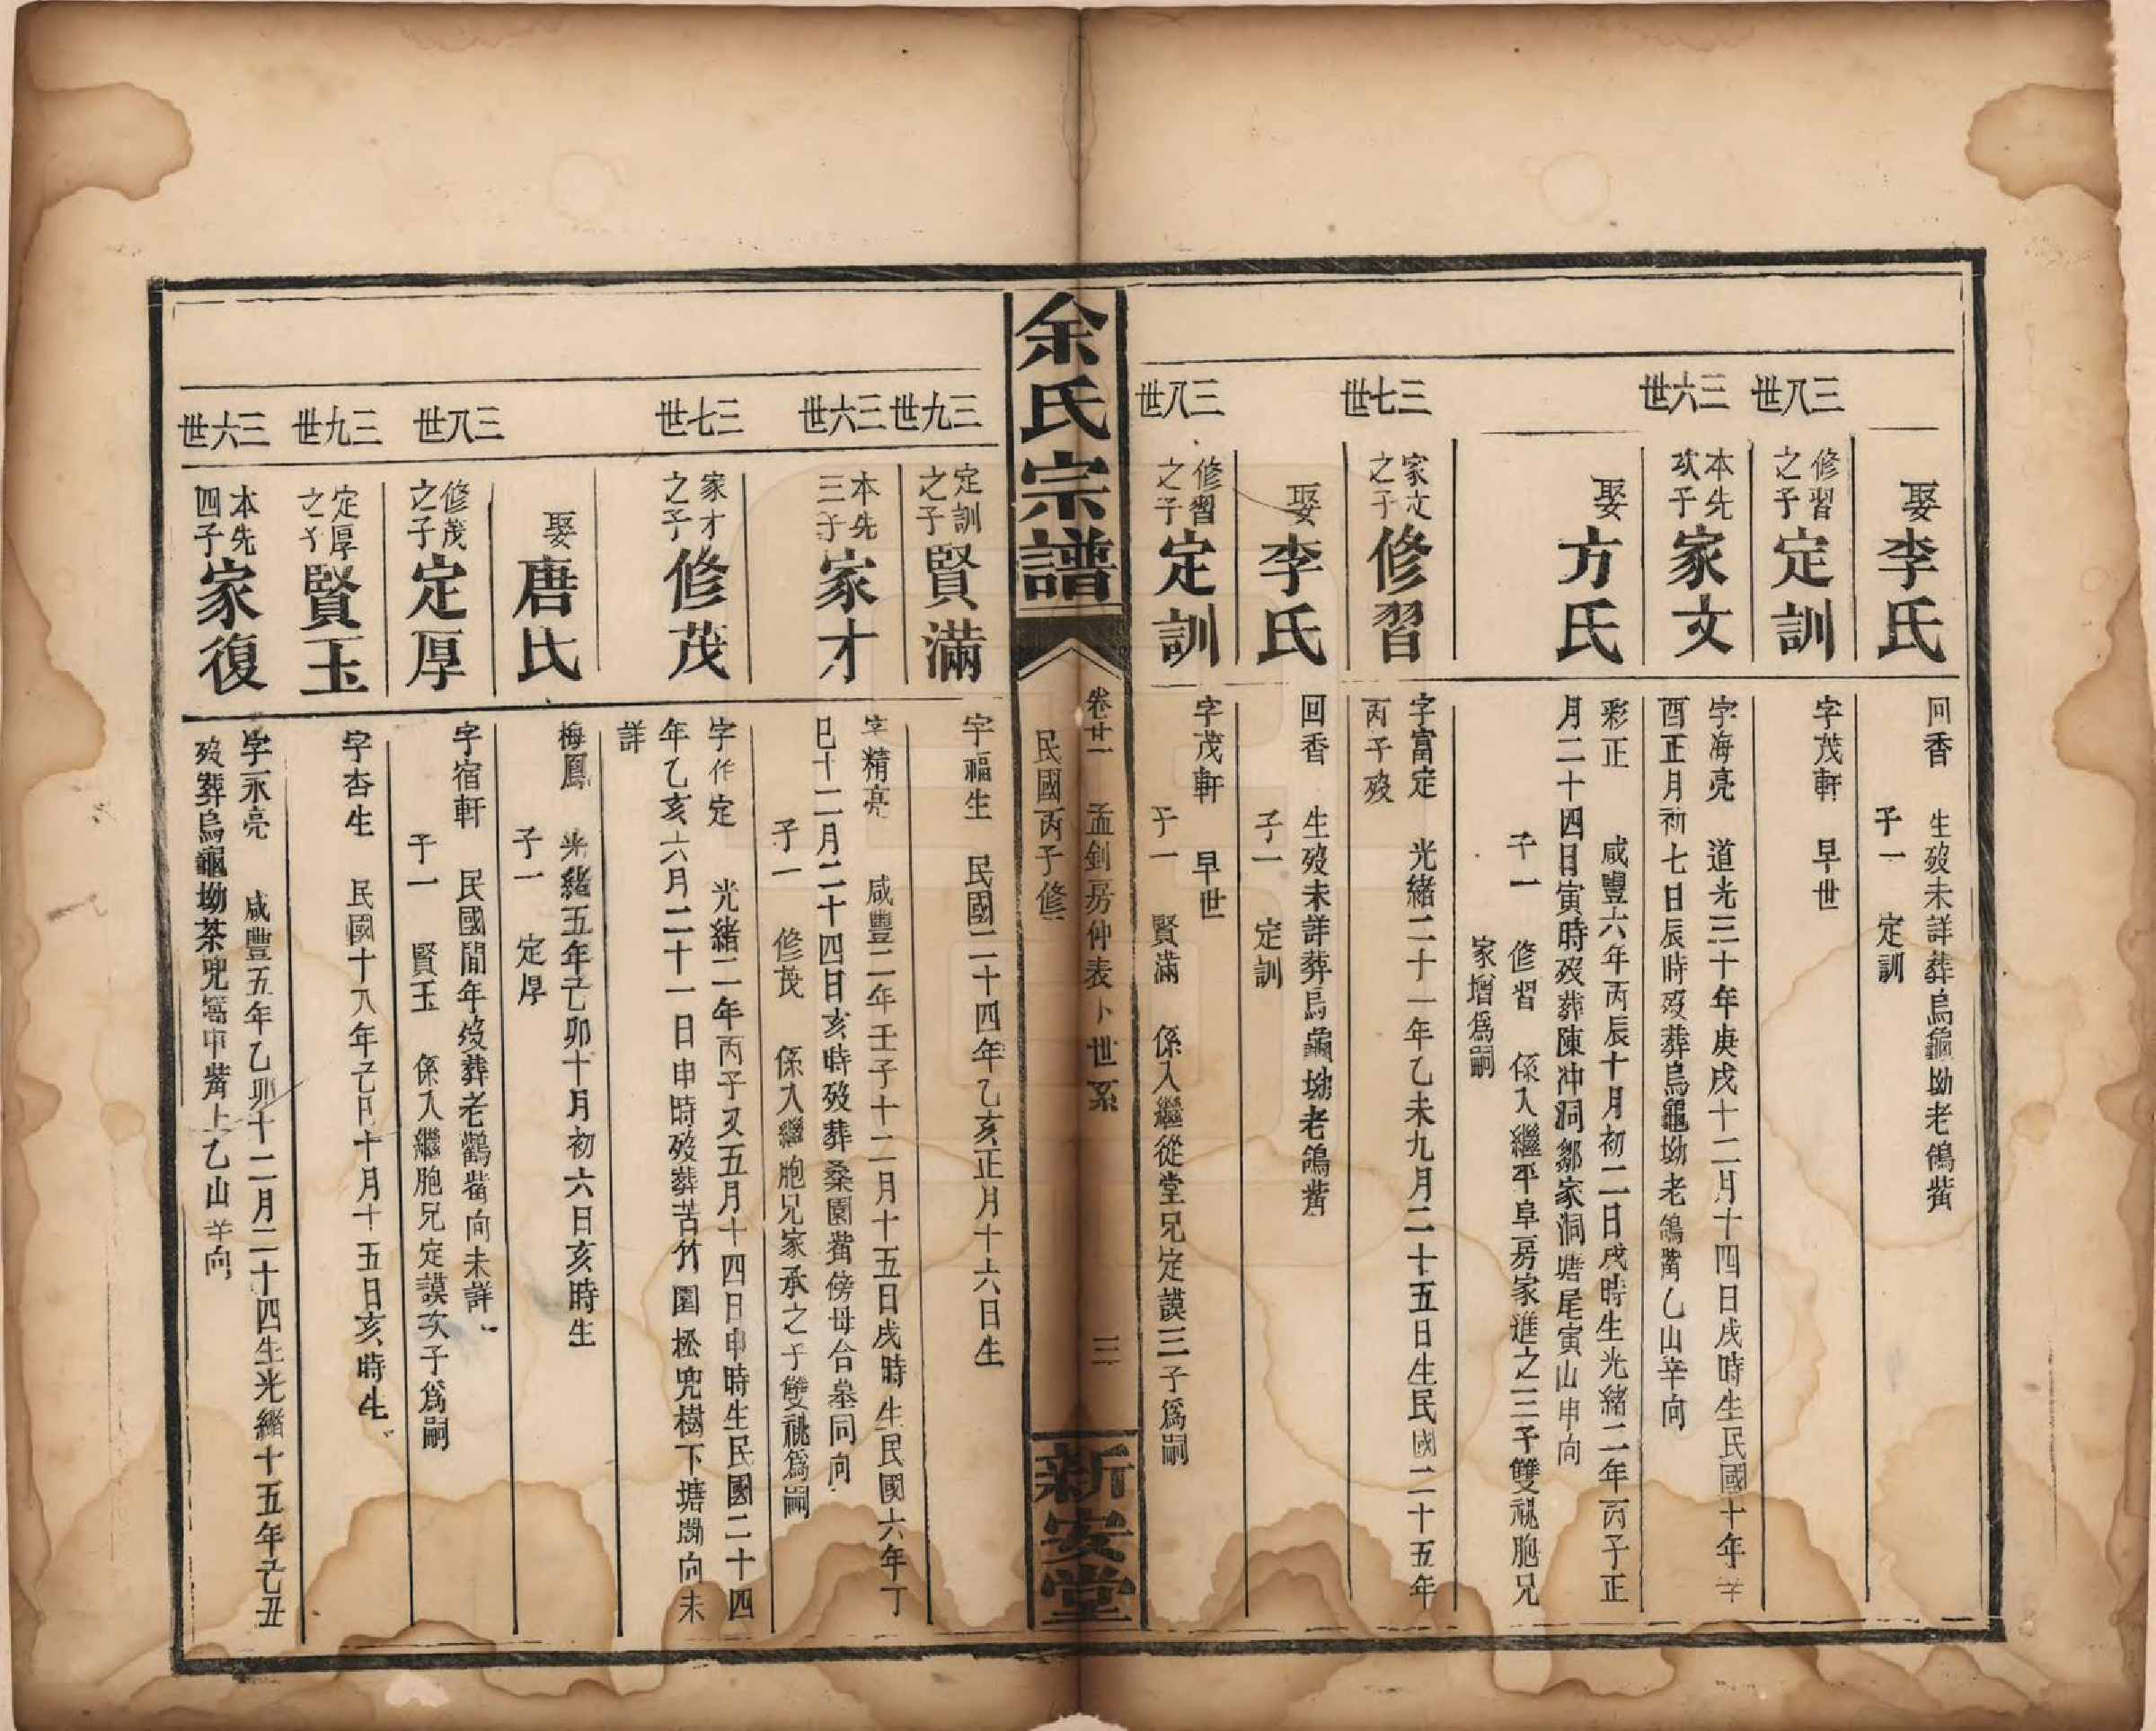 娶李氏
回香 生歿未詳葬烏龜坳老鴿嘴
子一 定訓
三八世
修習之子定訓
字茂軒 早世
三六世
本先次子家文
字海亮 道光三十年庚戌十二月十四日戌時生民國十年辛
酉正月初七日辰時歿葬烏龜坳老鴿嘴乙山辛向
娶方氏
彩正 咸豐六年丙辰十月初二日戌時生光緒二年丙子正
月二十四日寅時歿葬陳冲洞鄒家洞塘尾寅山申向
子一 修習 係入繼平阜房家進之三子雙祧胞兄
家增爲嗣
三七世
家文之子修習
字富定 光緒二十一年乙未九月二十五日生民國二十五年
丙子歿
娶李氏
回香 生歿未詳葬烏龜坳老鴿嘴
子一 定訓
三八世
修習之子定訓
字茂軒 早世
子一 賢滿 係入繼從堂兄定謨三子爲嗣
余氏宗譜
卷廿一 孟釗房仲表卜世系 三
民國丙子修
新安堂
三九世
定訓之子賢滿
字福生 民國二十四年乙亥正月十六日生
三六世
本先三子家才
字精亮 咸豐二年壬子十二月十五日戌時生民國六年丁
巳十二月二十四日亥時歿葬桑園嘴傍母合墓同向
子一 修茂 係入繼胞兄家承之子雙祧爲嗣
三七世
家才之子修茂
字作定 光緒二年丙子又五月十四日申時生民國二十四
年乙亥六月二十一日申時歿葬苦竹園松兜樹下塘墈向未
詳
娶唐氏
梅鳳 光緒五年己卯十月初六日亥時生
子一 定厚
三八世
修茂之子定厚
字宿軒 民國間年歿葬老鸛嘴向未詳
子一 賢玉 係入繼胞兄定謨次子爲嗣
三九世
定厚之子賢玉
字杏生 民國十八年己巳十月十五日亥時生
三六世
本先四子家復
字永亮 咸豐五年乙卯十二月二十四生光緒十五年己丑
歿葬烏龜坳茶兜窩中嘴上乙山辛向